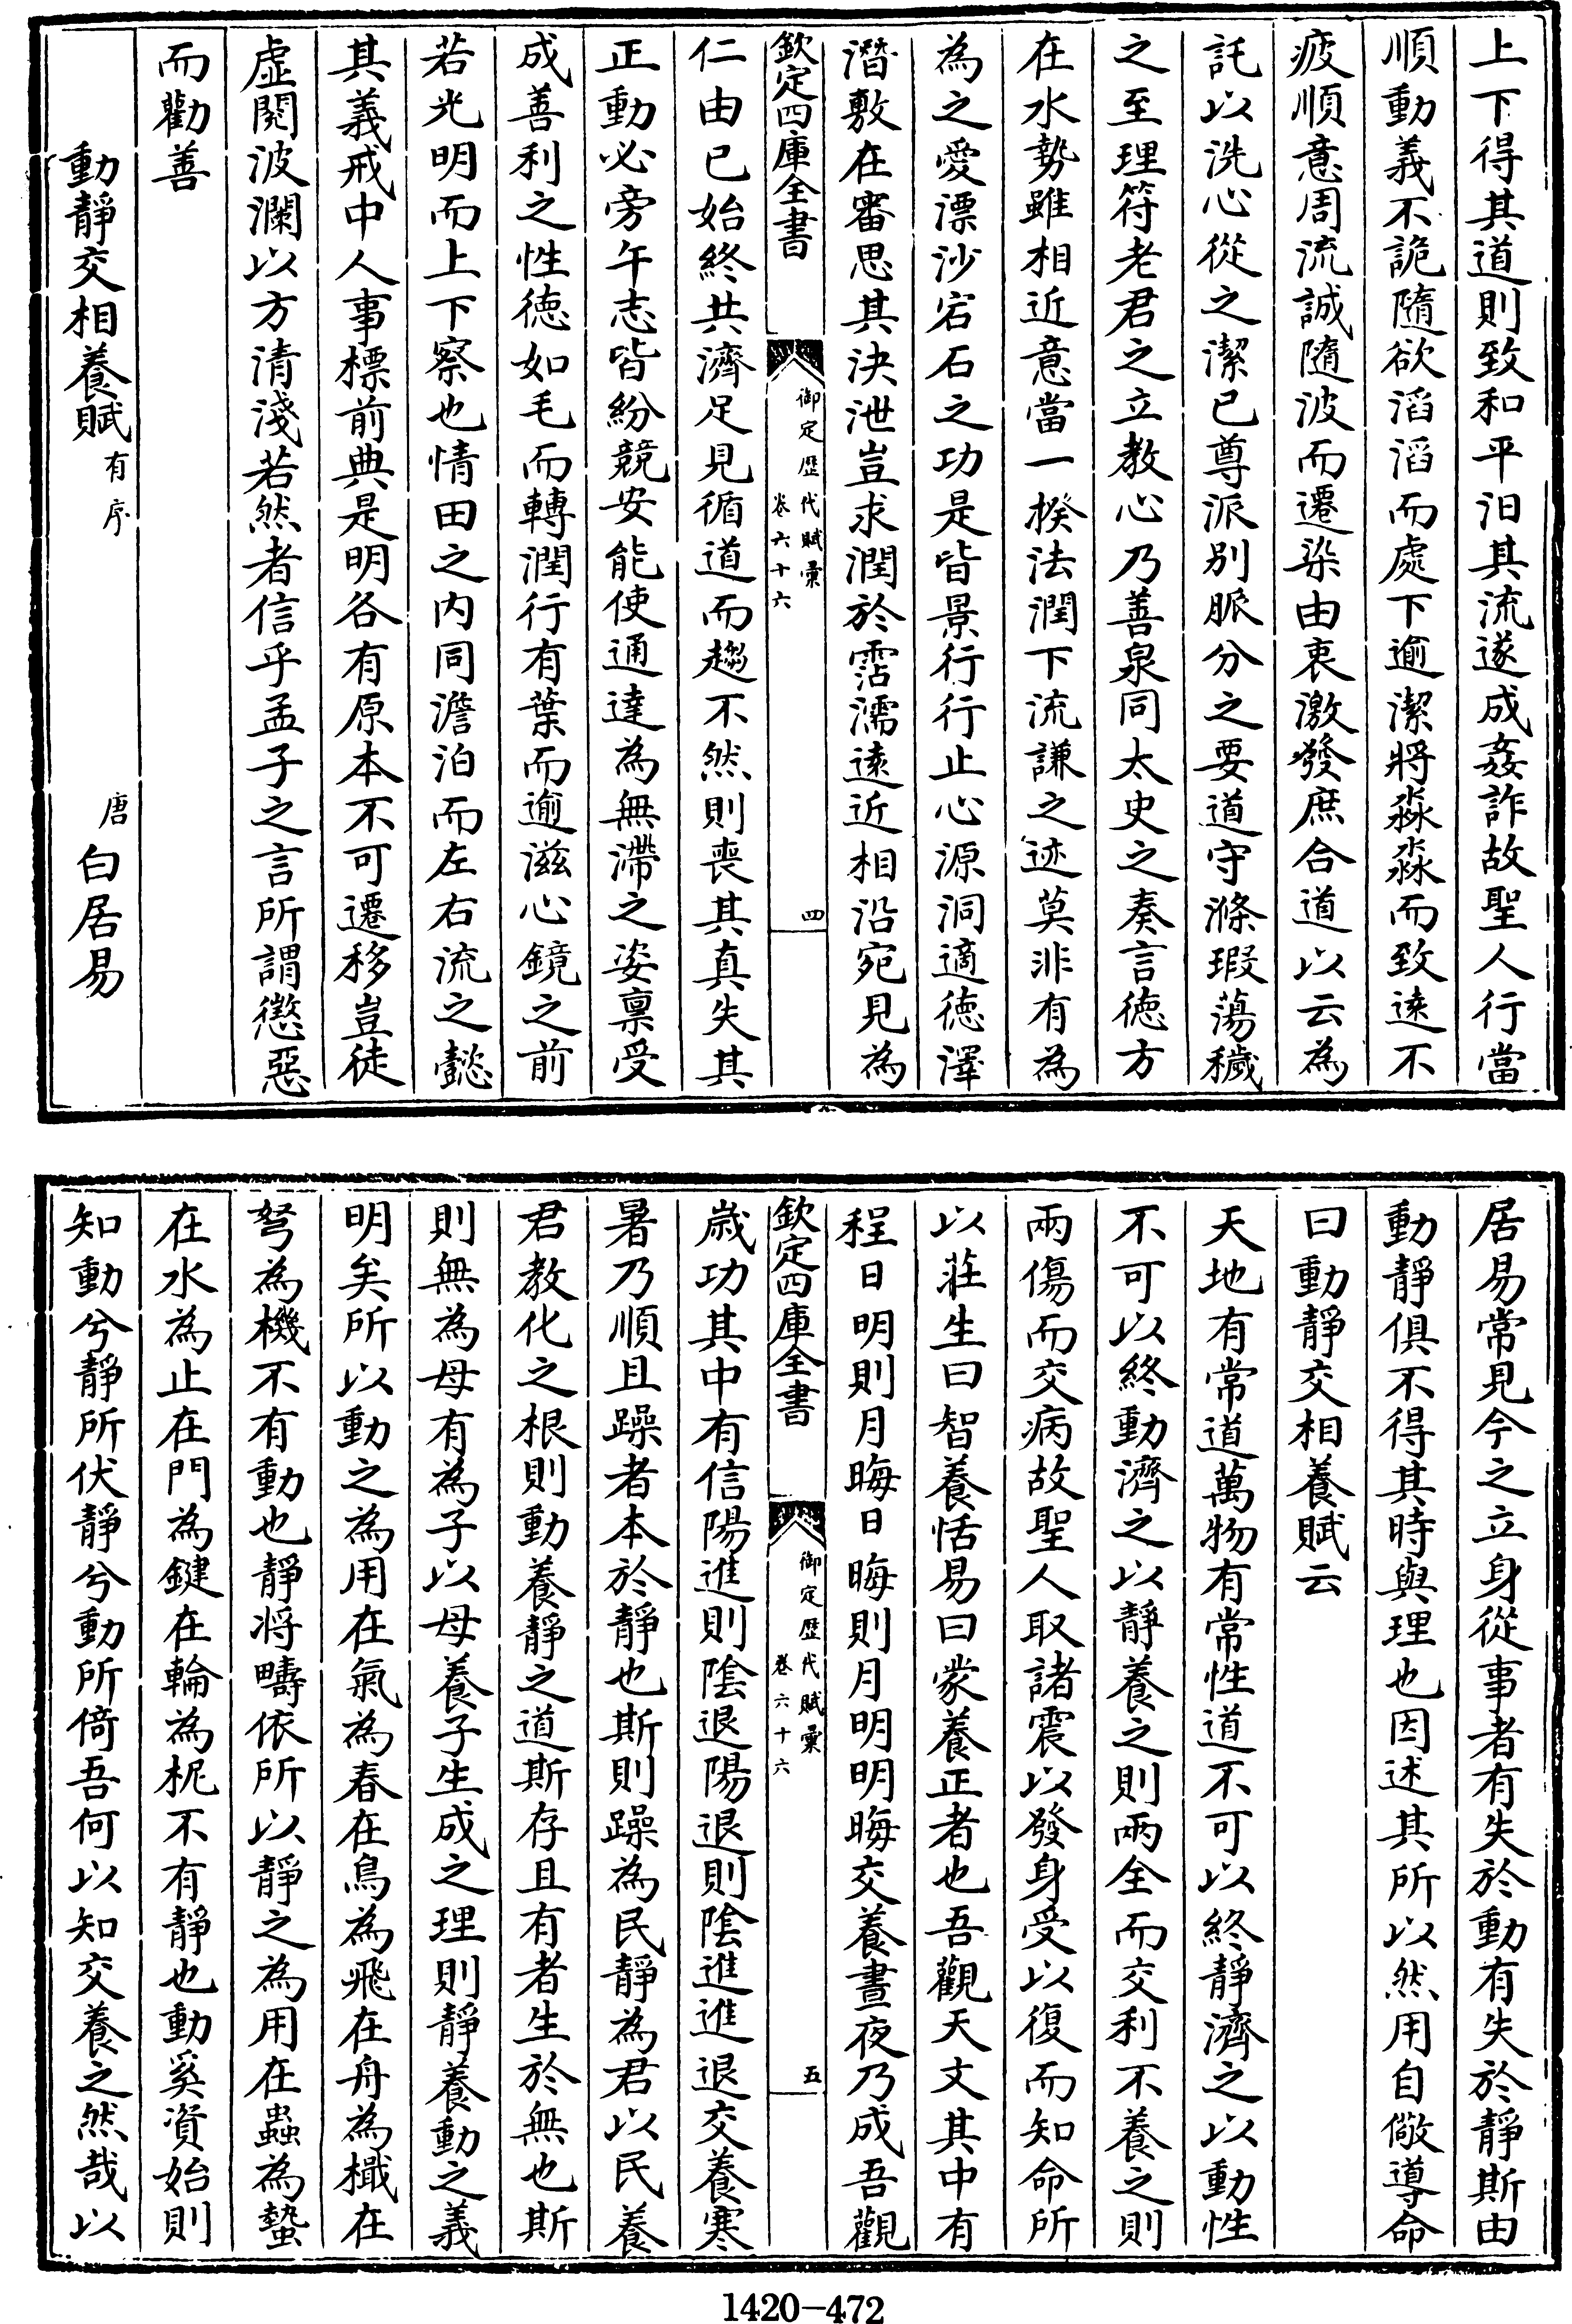 上下得其道則致和平汩其流遂成姦詐故聖人行當
順動義不詭隨欲滔滔而處下逾潔將淼淼而致遠不
疲順意周流誠隨波而遷染由衷激發庶合道以云為
託以洗心從之潔已尊派別脈分之要道守滌瑕蕩穢
之至理符老君之立教心乃善泉同太史之奏言徳方
在水勢雖相近意當一揆法潤下流謙之迹莫非有為
為之愛漂沙宕石之功是皆景行行止心源洞適徳澤
潛敷在審思其決泄豈求潤於霑濡逺近相沿宛見為
欽定四庫全書
御定歴代賦彙
卷六十六
四
仁由已始終共濟足見循道而趨不然則喪其真失其
正動必旁午志皆紛競安能使通達為無滯之姿禀受
成善利之性徳如毛而轉潤行有葉而逾滋心鏡之前
若光明而上下察也情田之内同澹泊而左右流之懿
其義戒中人事標前典是明各有原本不可遷移豈徒
虚閱波瀾以方清淺若然者信乎孟子之言所謂懲惡
而勸善
動靜交相養賦有序
唐 白居易
居易常見今之立身從事者有失於動有失於靜斯由
動靜俱不得其時與理也因述其所以然用自儆導命
曰動靜交相養賦云
天地有常道萬物有常性道不可以終靜濟之以動性
不可以終動濟之以靜養之則兩全而交利不養之則
兩傷而交病故聖人取諸震以發身受以復而知命所
以莊生曰智養恬易曰蒙養正者也吾觀天文其中有
程日明則月晦日晦則月明明晦交養晝夜乃成吾觀
欽定四庫全書
御定歴代賦彙
卷六十六
五
歲功其中有信陽進則陰退陽退則陰進進退交養寒
暑乃順且躁者本於靜也斯則躁為民靜為君以民養
君教化之根則動養靜之道斯存且有者生於無也斯
則無為母有為子以母養子生成之理則靜養動之義
明矣所以動之為用在氣為春在鳥為飛在舟為檝在
弩為機不有動也靜将疇依所以靜之為用在蟲為蟄
在水為止在門為鍵在輪為柅不有靜也動奚資始則
知動兮靜所伏靜兮動所倚吾何以知交養之然哉以
1420-472